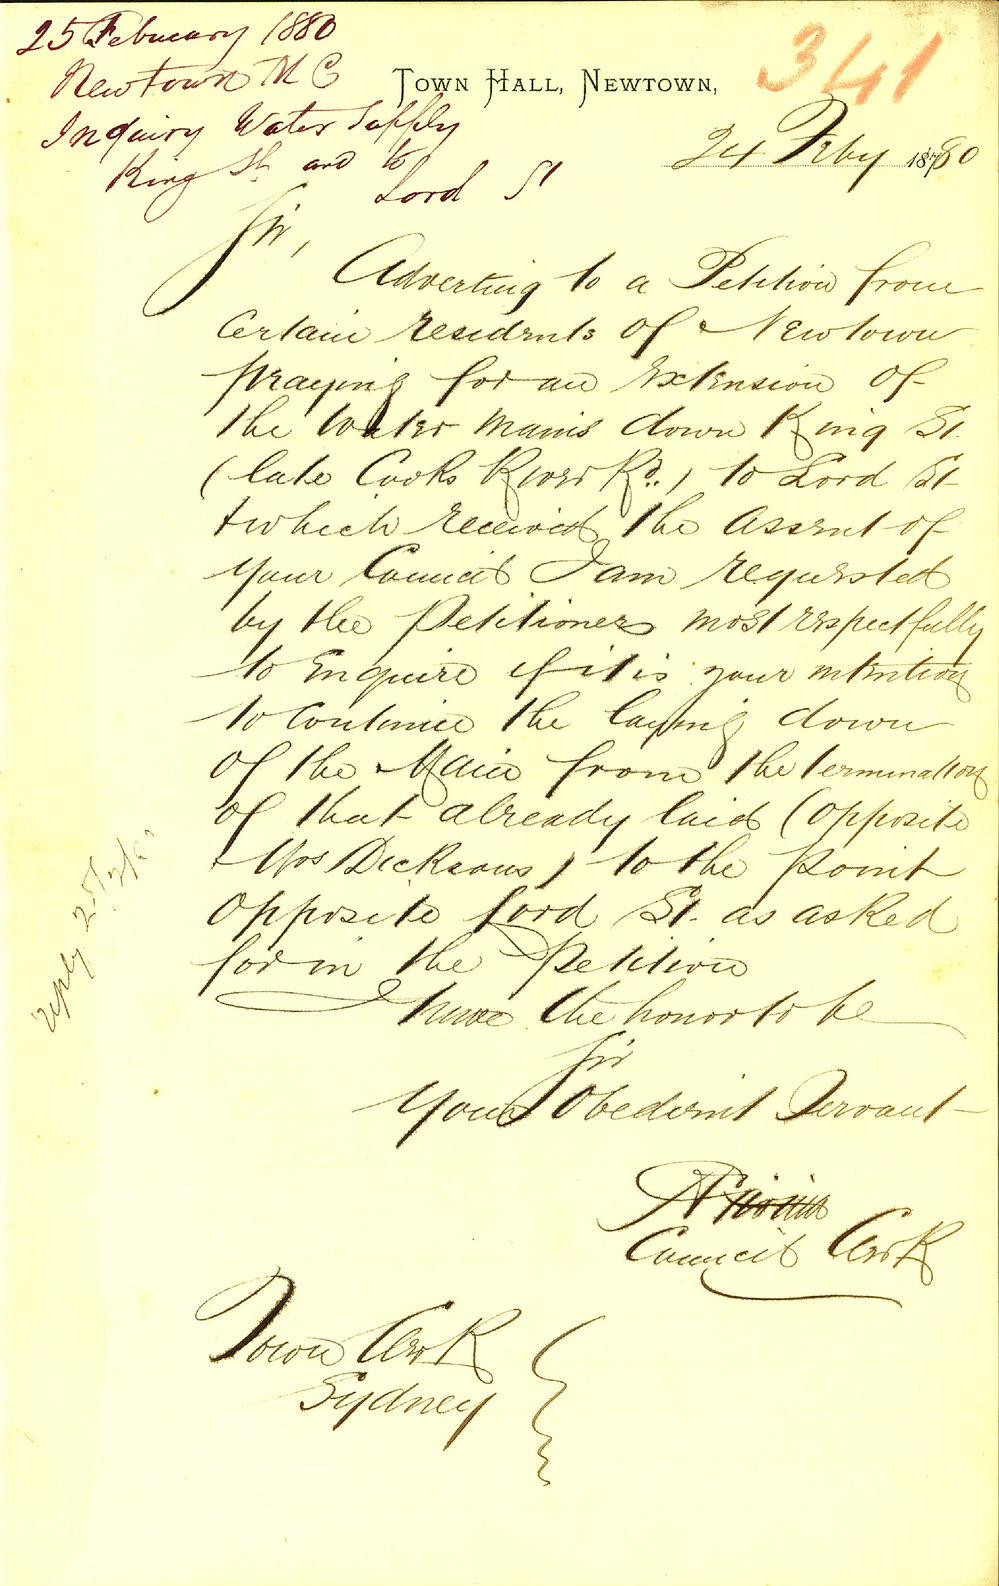 25 February 1880
Newtown M C
Inquiry Water Supply
King St and to
Lord St
341
TOWN HALL, NEWTOWN,
24 Feby 1880
Sir,
Adverting to a Petition from
Certain residents of Newtown
praying for an extension of
the Water Mains down King St.
(late Cooks River Rd.) to Lord St
& which received the assent of
your Council I am requested
by the Petitioners most respectfully
to Enquire if it is your intention
to Continue the laying down
of the Main from the termination
of that already laid (opposite
Mrs Dicksons) to the point
Opposite Lord St. as asked
for in the Petition
I have the honor to be
Sir
Your Obedient Servant
Council Clerk
Town Clerk
Sydney
reply